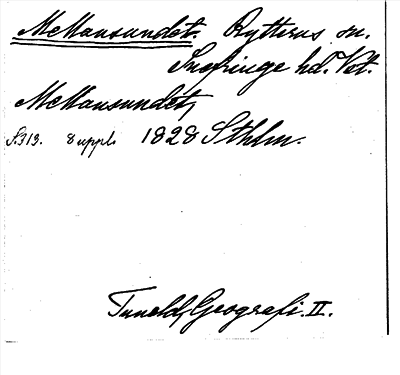 Mellansundet. Rytterns sn.
Snefringe hd. Vst.
Mellansundet,
S.313. 8 uppl. 1828 Sthlm.
Tuneld, Geografi. II.